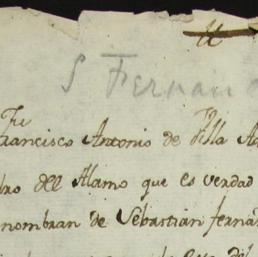 S Fernan
Francisco Antonio de Villa
dro del Alamo que es verdad
nombran de Sebastian ferna